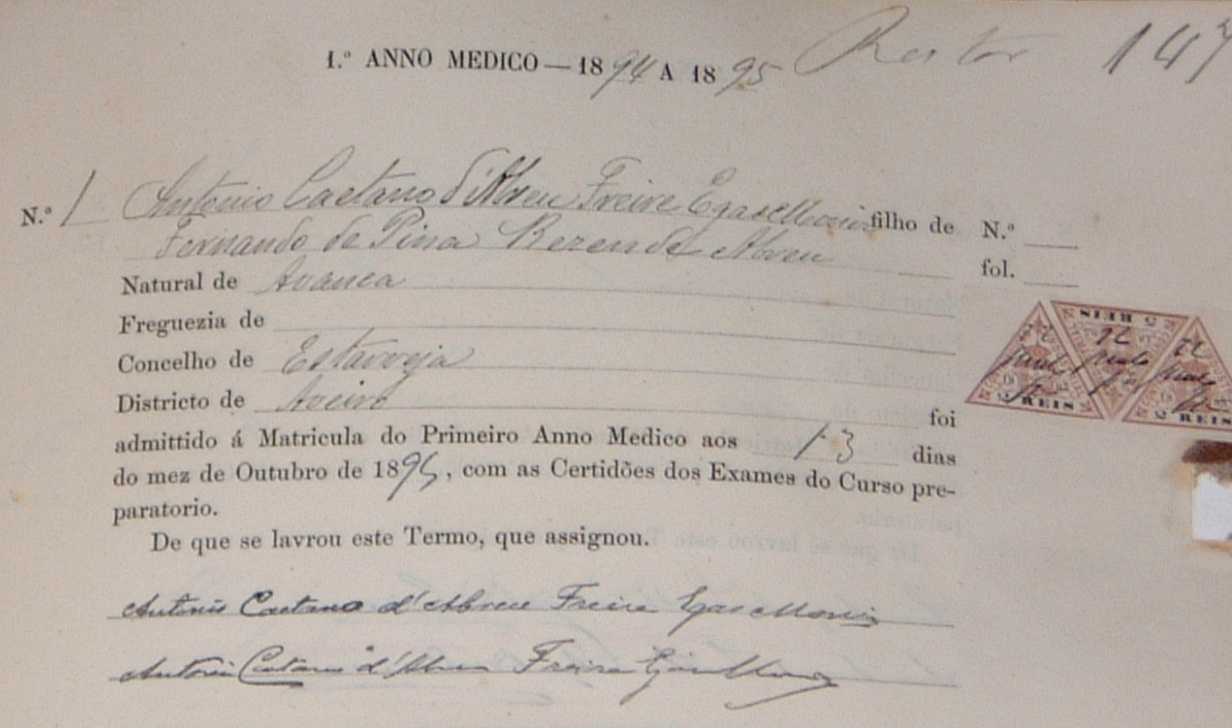 1.º ANNO MEDICO — 1894 A 1895
147
N.º 1 Antonio Caetano d'Abreu Freire Egas Moniz filho de N.º
Fernando de Pina Rezende Abreu
fol.
Natural de Avanca
Freguezia de
Concelho de Estarreja
Districto de Aveiro foi
admittido á Matricula do Primeiro Anno Medico aos 13 dias
do mez de Outubro de 1894, com as Certidões dos Exames do Curso pre-
paratorio.
De que se lavrou este Termo, que assignou.
Antonio Caetano d'Abreu Freire Egas Moniz
Antonio Caetano d'Abreu Freire Egas Moniz
5 REIS
5 REIS
5 REIS